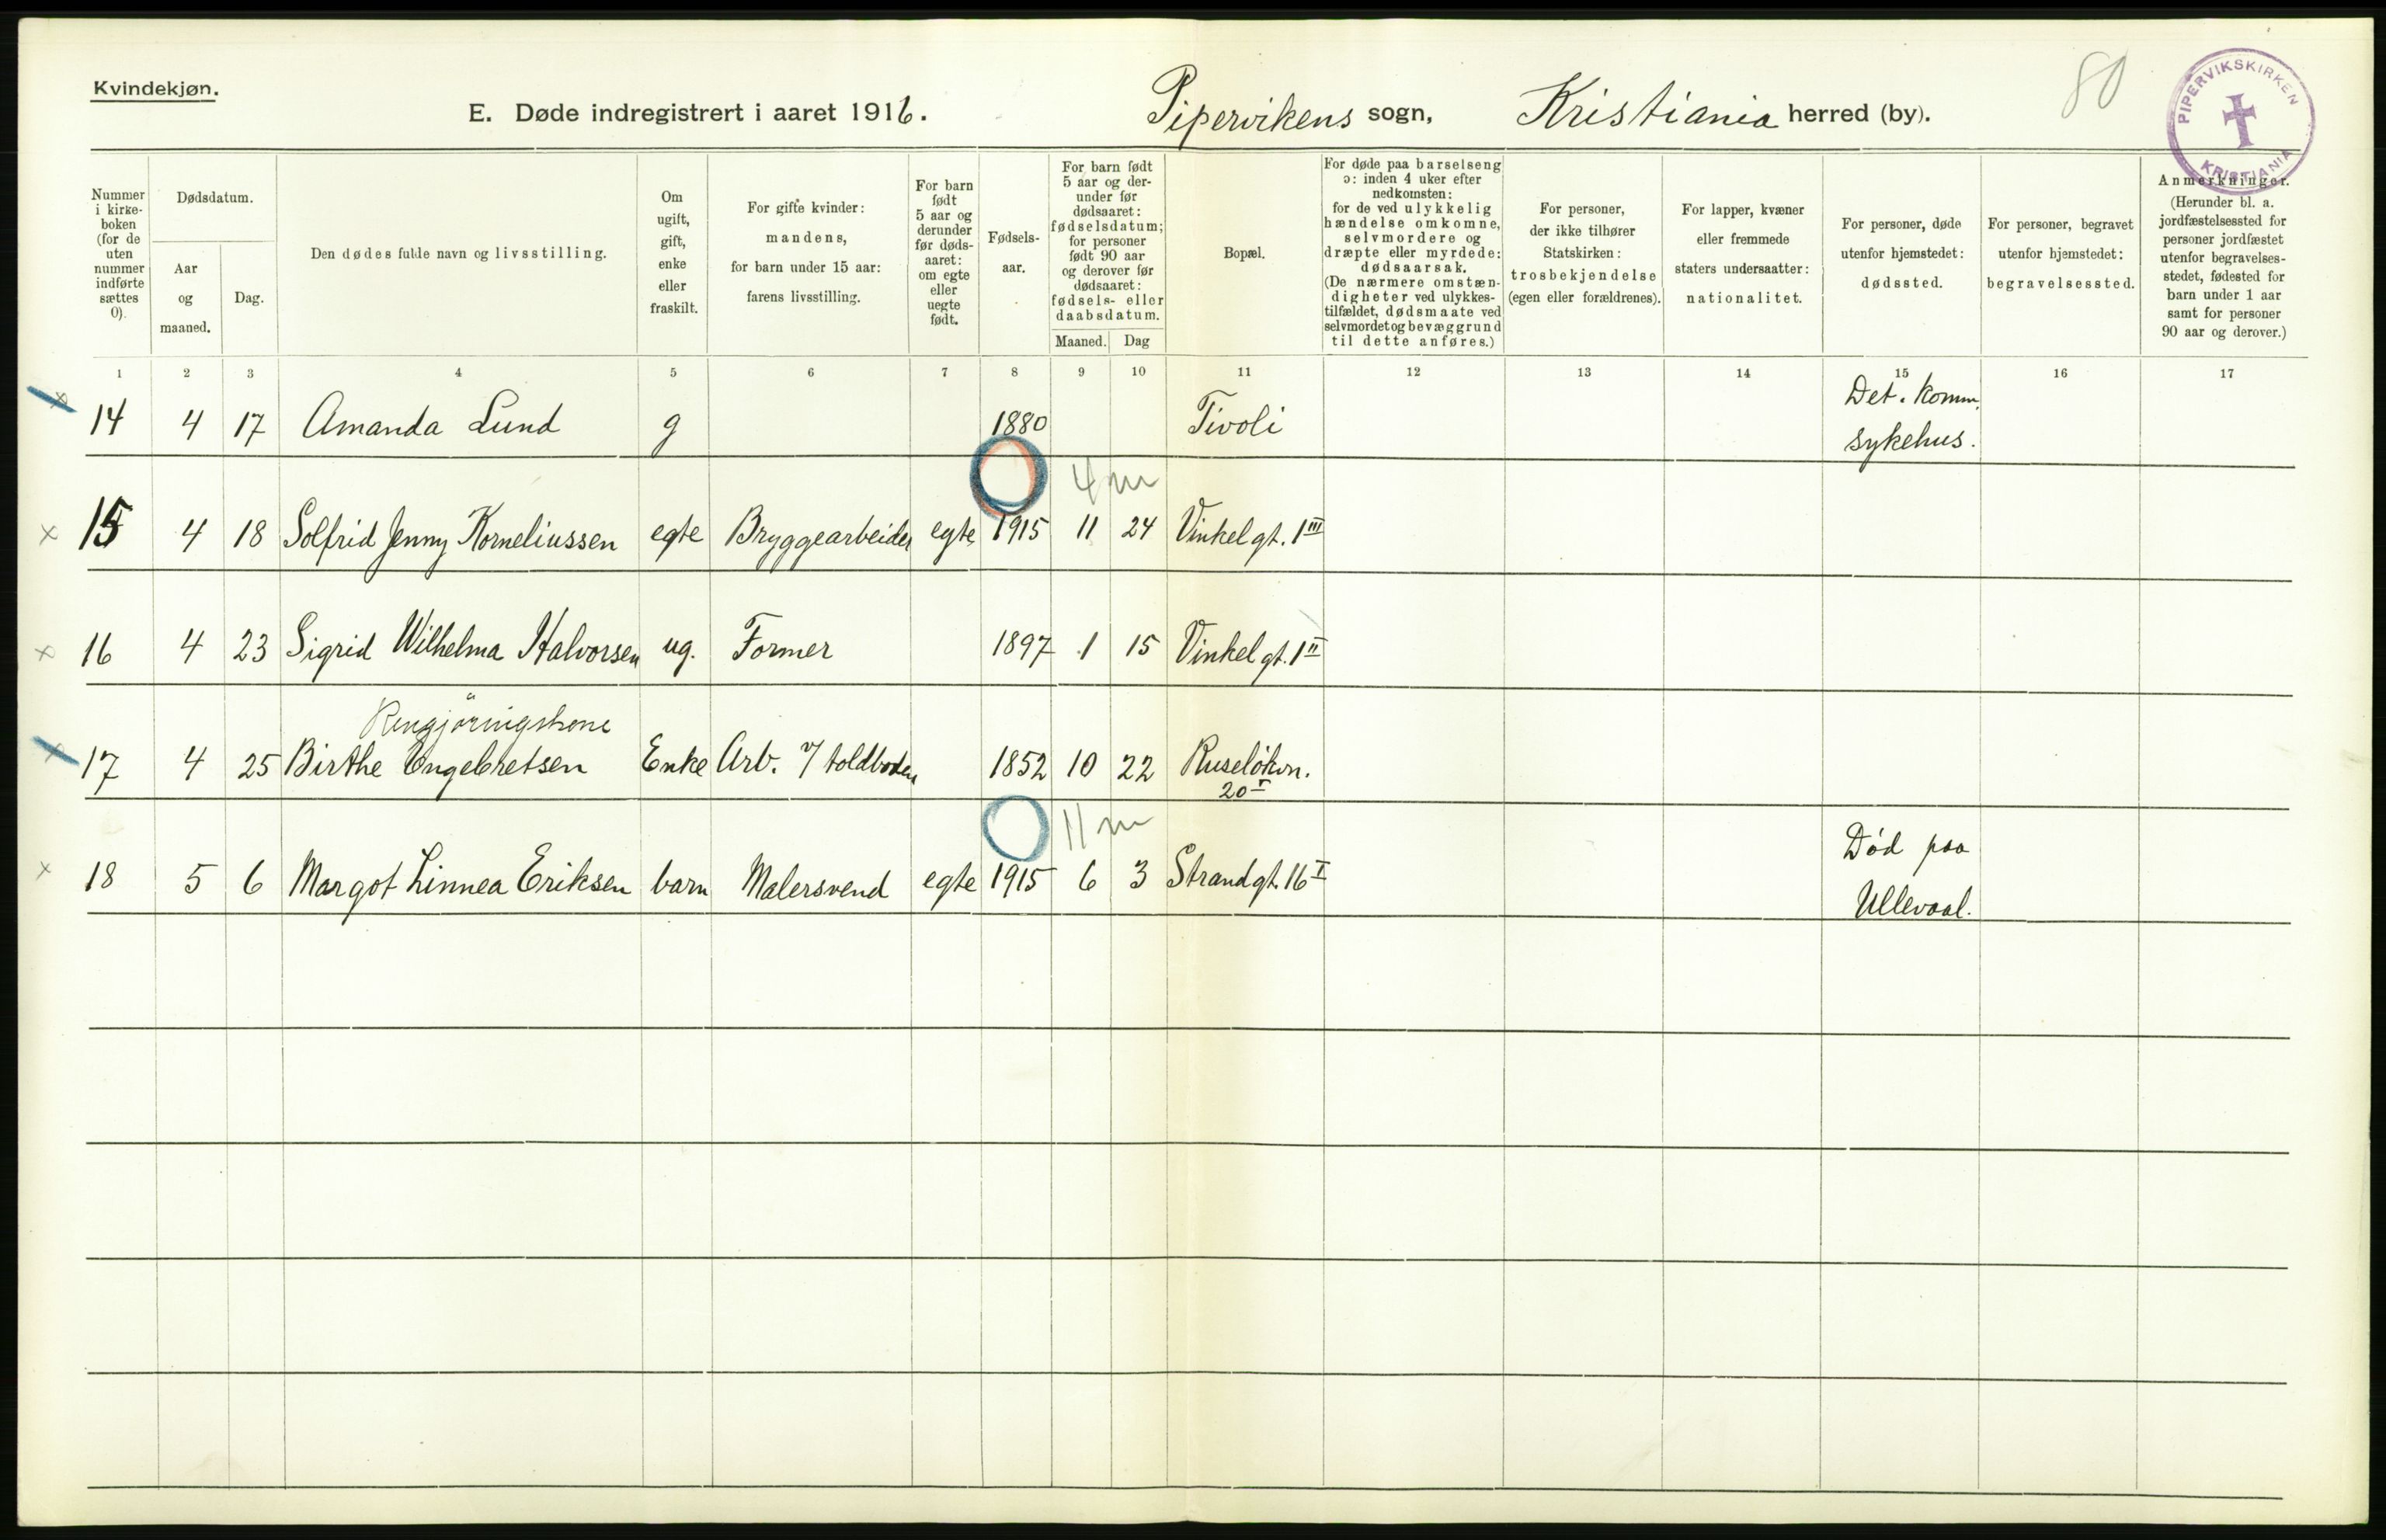 Kvindekjøn.
E. Døde indregistrert i aaret 1916.
Pipervikens sogn, Kristiania herred (by).
80
PIPERVIKSKIRKEN
KRISTIANIA
Nummer
i kirke-
boken
(for de
uten
nummer
indførte
sættes
0).
Dødsdatum.
Aar
og
maaned.
Dag.
Den dødes fulde navn og livsstilling.
Om
ugift,
gift,
enke
eller
fraskilt.
For gifte kvinder:
mandens,
for barn under 15 aar:
farens livsstilling.
For barn
født
5 aar og
derunder
før døds-
aaret:
om egte
eller
uegte
født.
Fødsels-
aar.
For barn født
5 aar og der-
under før
dødsaaret:
fødselsdatum;
for personer
født 90 aar
og derover før
dødsaaret:
fødsels- eller
daabsdatum.
Maaned. Dag
Bopæl.
For døde paa barselseng
ɔ: inden 4 uker efter
nedkomsten:
for de ved ulykkelig
hændelse omkomne,
selvmordere og
dræpte eller myrdede:
dødsaarsak.
(De nærmere omstæn-
digheter ved ulykkes-
tilfældet, dødsmaate ved
selvmordet og bevæggrund
til dette anføres.)
For personer,
der ikke tilhører
Statskirken:
trosbekjendelse
(egen eller forældrenes).
For lapper, kvæner
eller fremmede
staters undersaatter:
nationalitet.
For personer, døde
utenfor hjemstedet:
dødssted.
For personer, begravet
utenfor hjemstedet:
begravelsessted.
Anmerkninger.
(Herunder bl. a.
jordfæstelsessted for
personer jordfæstet
utenfor begravelses-
stedet, fødested for
barn under 1 aar
samt for personer
90 aar og derover.)
1 2 3 4 5 6 7 8 9 10 11 12 13 14 15 16 17
x 14 4 17 Amanda Lund g 1880 Tivoli Det. komm.
sykehus.
4 m
x 15 4 18 Solfrid Jenny Korneliussen egte Bryggearbeider egte 1915 11 24 Vinkelgt. 1 III
x 16 4 23 Sigrid Wilhelma Halvorsen ug. Former 1897 1 15 Vinkelgt. 1 II
Rengjøringskone
x 17 4 25 Birthe Engebretsen Enke Arb. v/ toldboden 1852 10 22 Ruseløkvn.
20 I
11 m
x 18 5 6 Margot Linnea Eriksen barn Malersvend egte 1915 6 3 Strandgt. 16 I Død paa
Ullevaal.